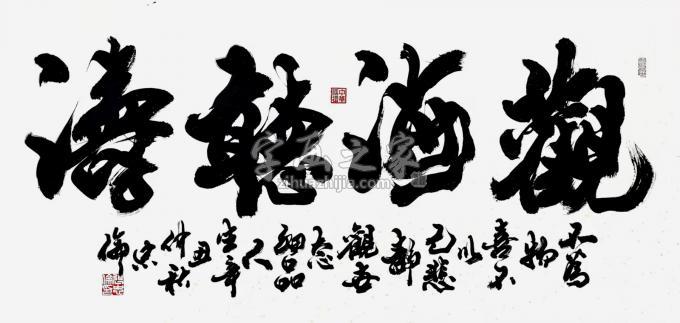 觀海聽濤
不爲
物
喜不
以
己悲
靜
觀世
态
細品
人
生辛
丑
仲秋
倫
字画之家
zihuazhijia.com